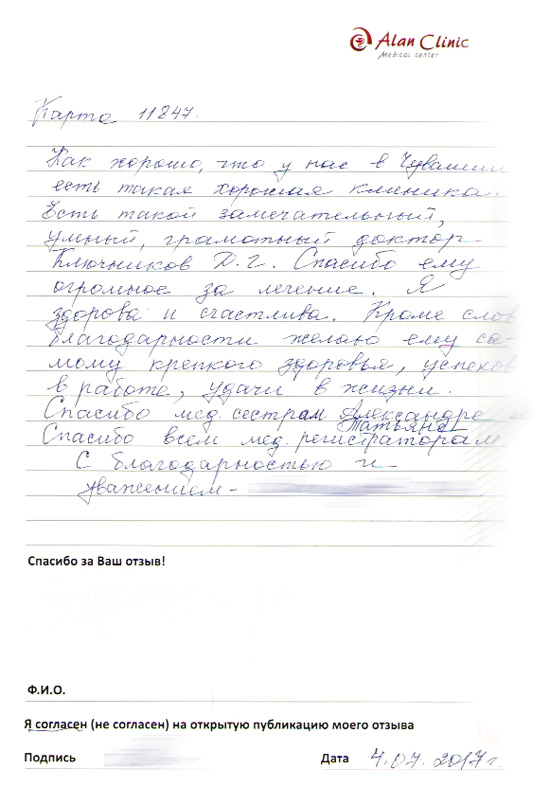 Alan Clinic
Medical center
Карта 11847.
Как хорошо, что у нас в Чувашии
есть такая хорошая клиника.
Есть такой замечательный,
умный, грамотный доктор-
Ключников Д.Г. Спасибо ему
огромное за лечение. Я
здорова и счастлива. Кроме слов
благодарности желаю ему са-
мому крепкого здоровья, успехов
в работе, удачи в жизни.
Спасибо мед. сестрам Александре и
Татьяне
Спасибо всем мед. регистраторам.
С благодарностью и
уважением-
Спасибо за Ваш отзыв!
Ф.И.О.
Я согласен (не согласен) на открытую публикацию моего отзыва
Подпись Дата 4.07.2017г.